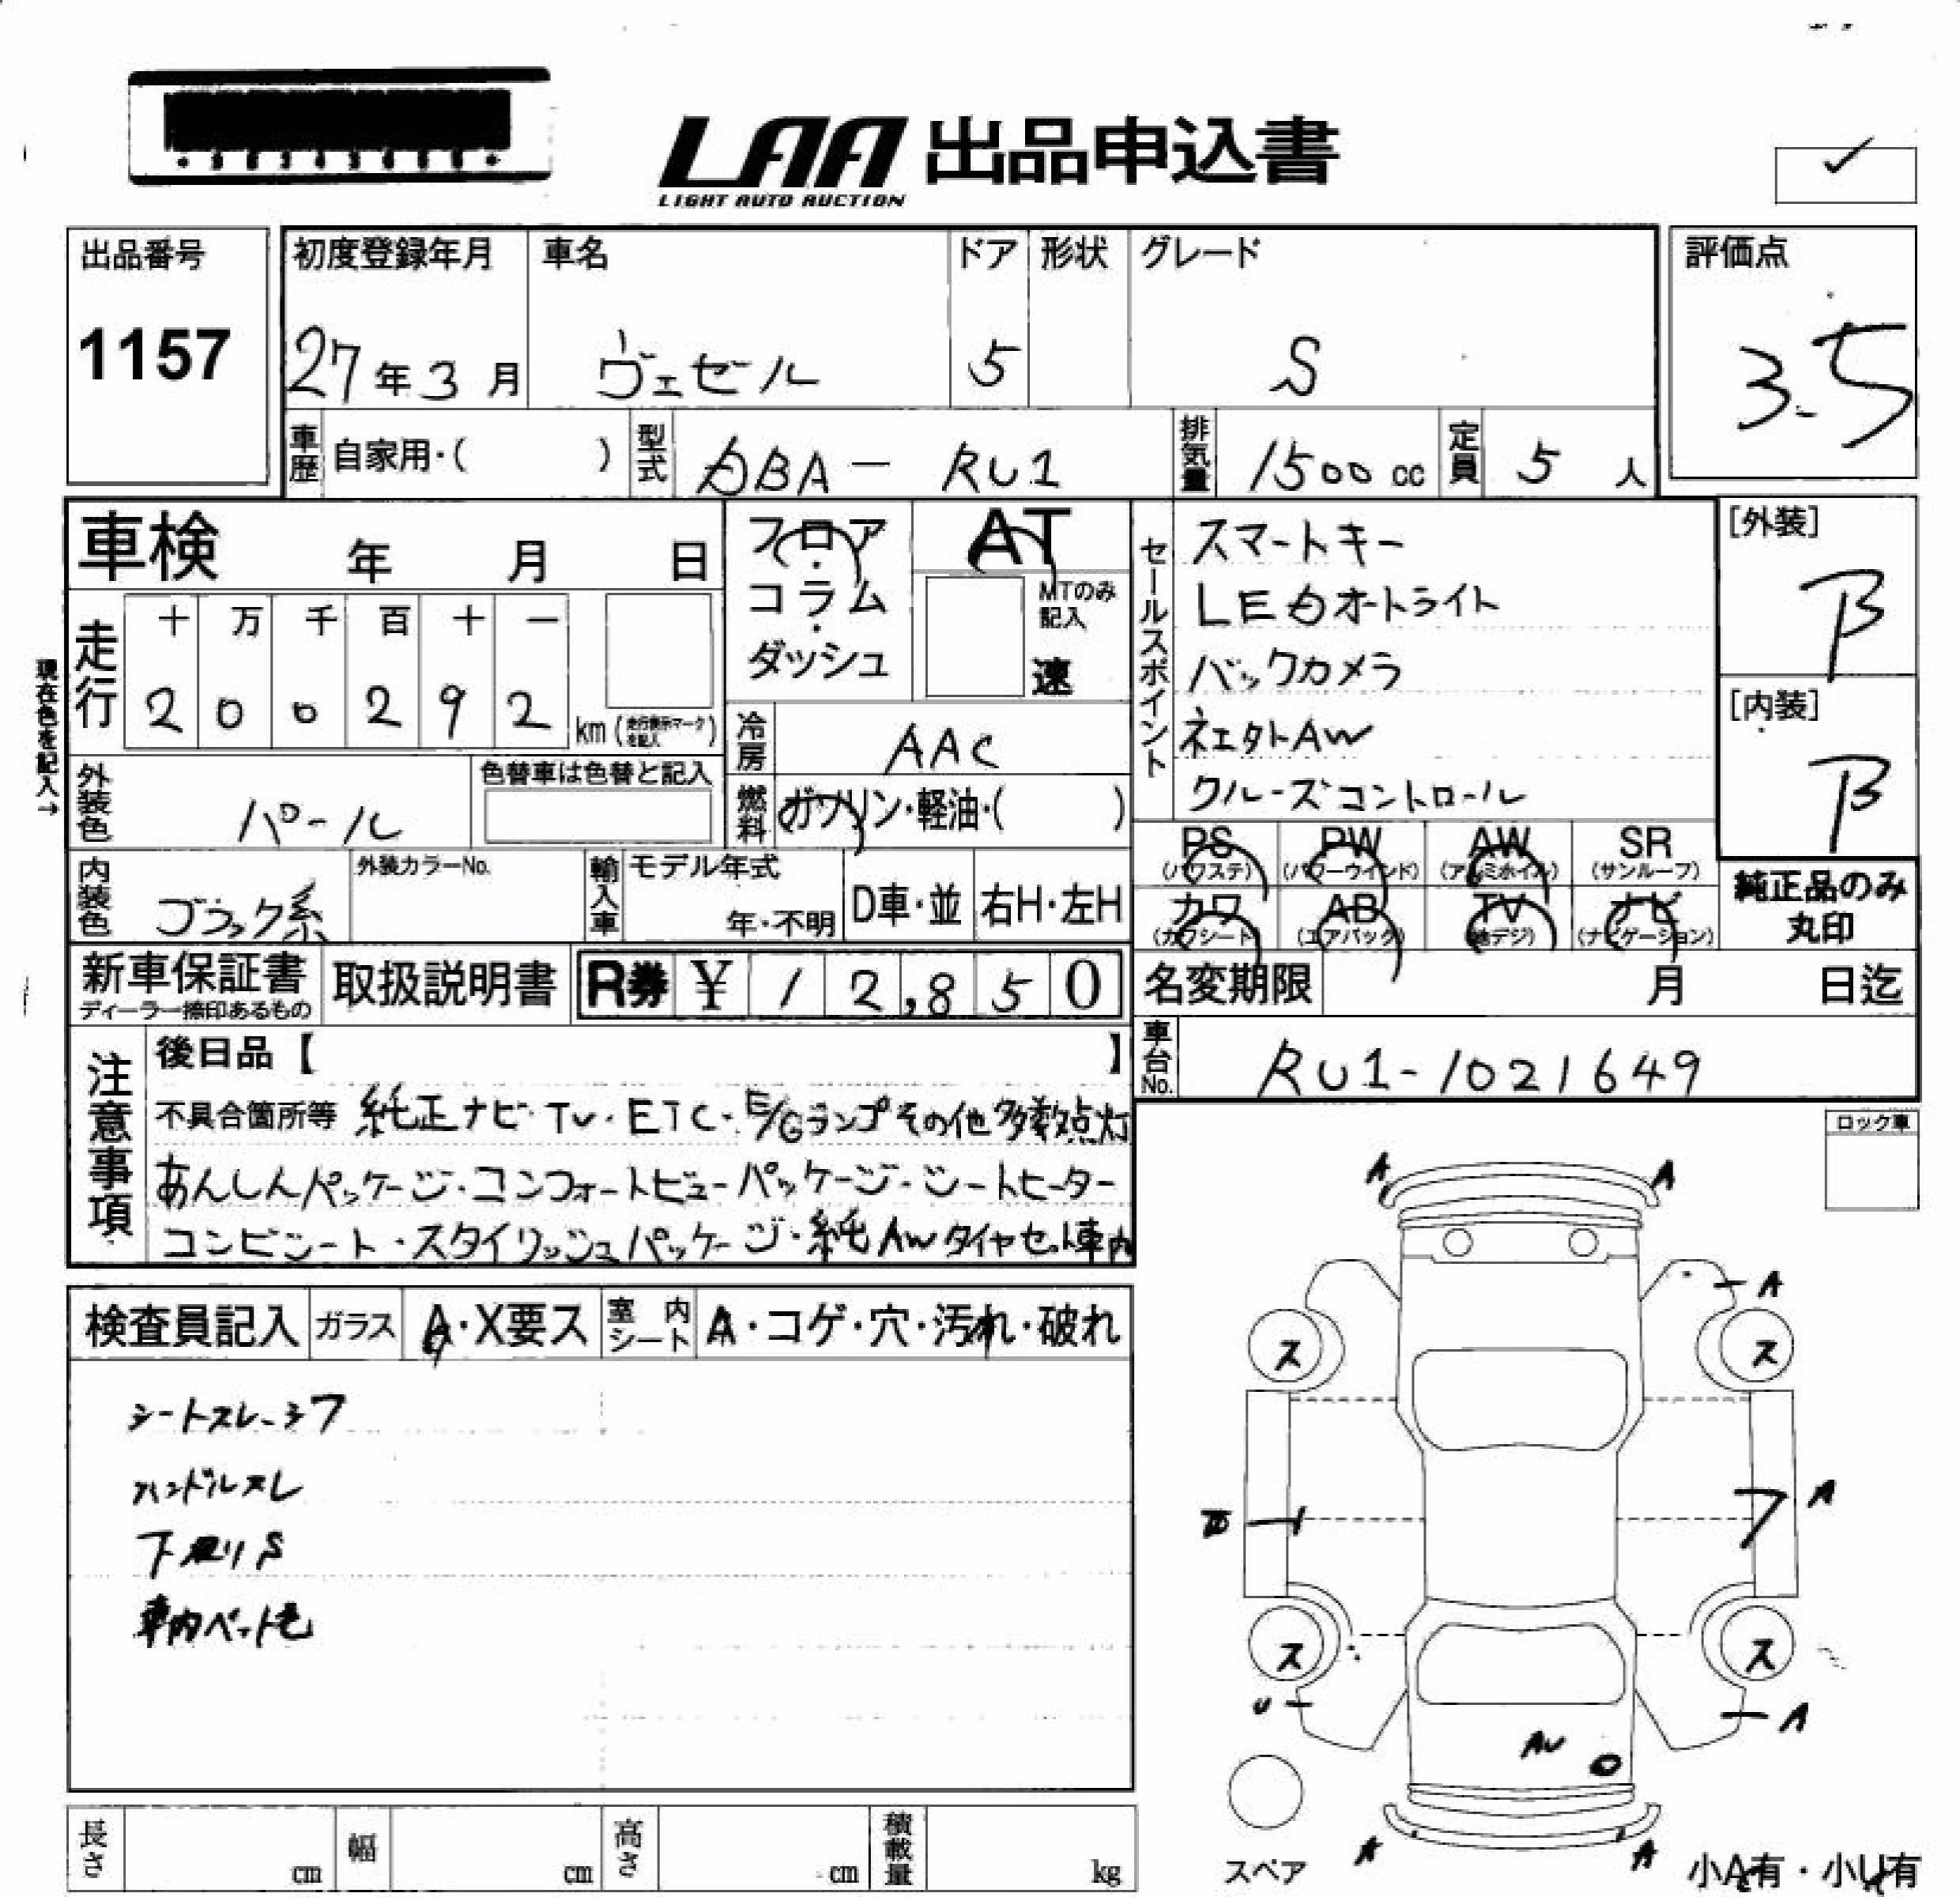 LAA 出品申込書
LIGHT AUTO AUCTION
出品番号
1157
初度登録年月 車名 ドア 形状 グレード
27年3月 ヴェゼル 5 S
評価点
3.5
車歴 自家用・( ) 型式 DBA-RU1 排気量 1500cc 定員 5人
車検 年 月 日
フロア・コラム・ダッシュ
AT
MTのみ記入
速
走行 十 万 千 百 十 一
2 0 0 2 9 2 km(走行表示マークを記入)
現在色を記入→
冷房 AAC
燃料 ガソリン・軽油・( )
外装色 パール
色替車は色替と記入
内装色 ブラック系
外装カラーNo.
輸入車 モデル年式 年・不明 D車・並 右H・左H
セールスポイント
スマートキー
LEDオートライト
バックカメラ
社外AW
クルーズコントロール
[外装]
B
[内装]
B
PS(パワステ) PW(パワーウインド) AW(アルミホイル) SR(サンルーフ)
カワ(カワシート) AB(エアバック) TV(地デジ) ナビ(ナビゲーション)
純正品のみ丸印
新車保証書 ディーラー捺印あるもの
取扱説明書
R券 ¥12,850
名変期限 月 日迄
車台No. RU1-1021649
注意事項
後日品【 】
不具合箇所等 純正ナビ・TV・ETC・E/Gランプその他多数点灯
あんしんパッケージ・コンフォートビューパッケージ・シートヒーター
コンビシート・スタイリッシュパッケージ・純AWタイヤセット車内
ロック車
検査員記入 ガラス A・X要ス 室内シート A・コゲ・穴・汚れ・破れ
シートスレ・シワ
ハンドルスレ
下廻りS
車内ペット毛
A A
A
ス ス
A
ス ス
U A
AU
A A
スペア
小A有・小U有
長さ cm 幅 cm 高さ cm 積載量 kg